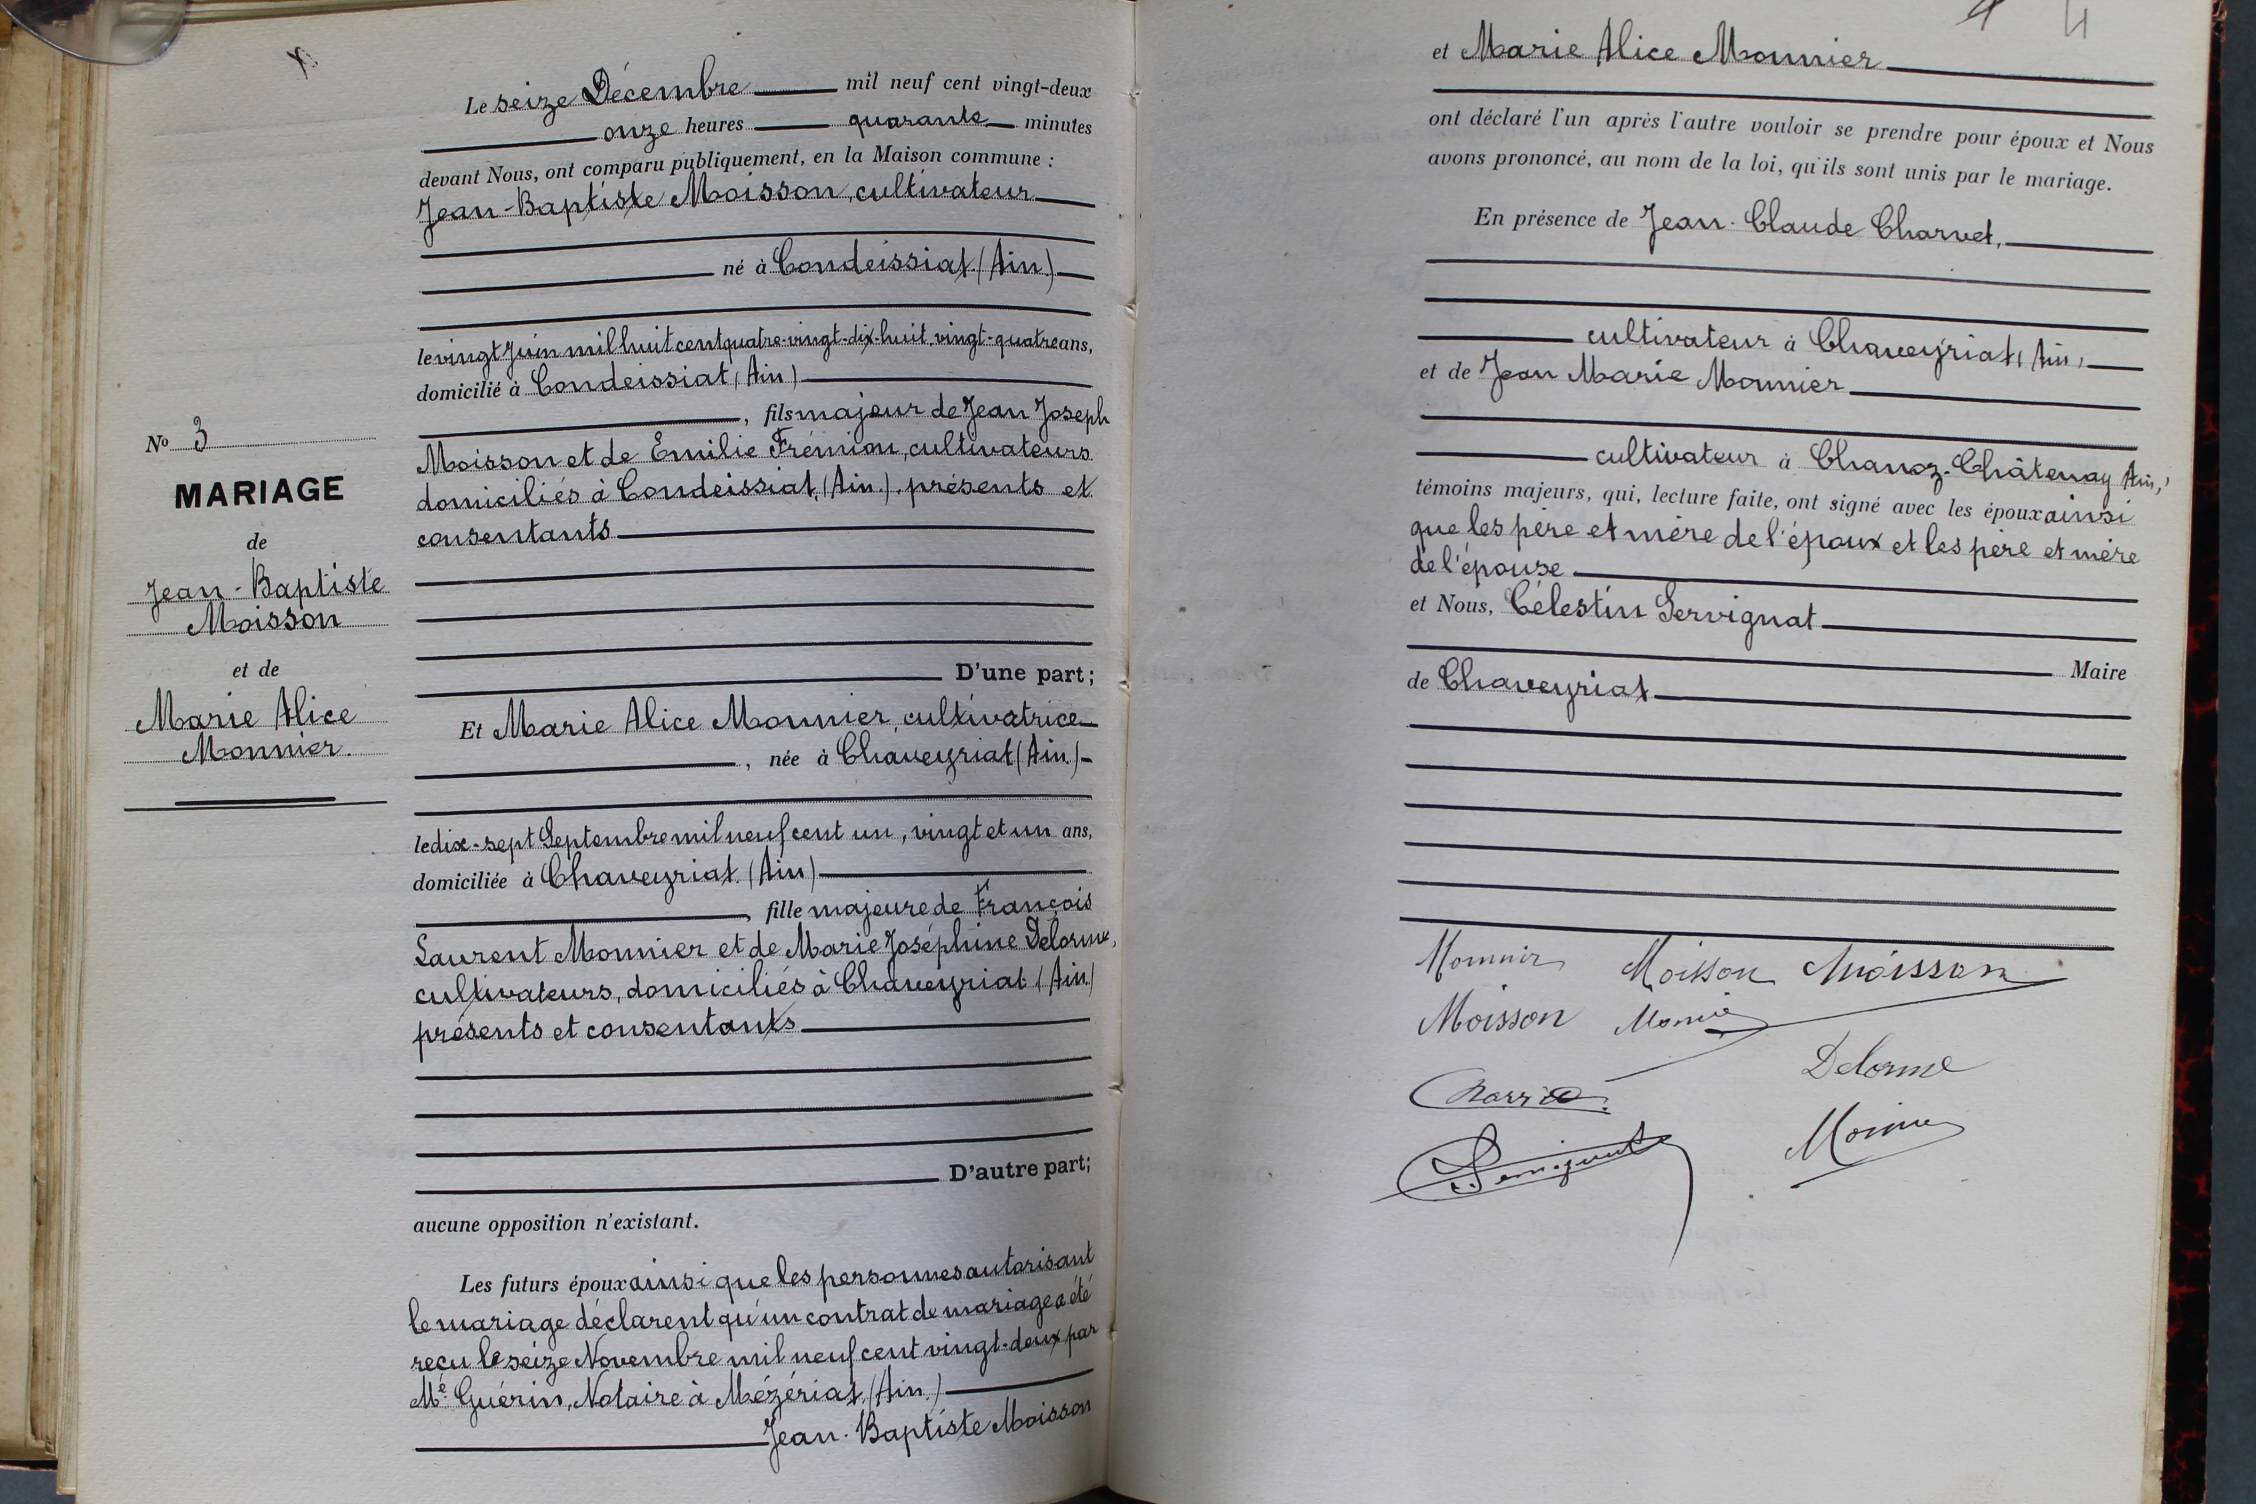 Le seize Décembre mil neuf cent vingt-deux
onze heures quarante minutes
devant Nous, ont comparu publiquement, en la Maison commune :
Jean-Baptiste Moisson, cultivateur
né à Condeissiat (Ain)
le vingt Juin mil huit cent quatre-vingt-dix-huit, vingt-quatre ans,
domicilié à Condeissiat (Ain)
, fils majeur de Jean Joseph
Moisson et de Emilie Frémion, cultivateurs
domiciliés à Condeissiat, (Ain.), présents et
consentants
D'une part;
No 3
MARIAGE
de
Jean-Baptiste
Moisson
et de
Marie Alice
Monnier.
Et Marie Alice Monnier, cultivatrice
, née à Chaveyriat (Ain)
le dix-sept Septembre mil neuf cent un, vingt et un ans,
domiciliée à Chaveyriat (Ain)
, fille majeure de François
Laurent Monnier et de Marie Joséphine Delorme,
cultivateurs, domiciliés à Chaveyriat (Ain)
présents et consentants
D'autre part;
aucune opposition n'existant.
Les futurs époux ainsi que les personnes autorisant
le mariage déclarent qu'un contrat de mariage a été
reçu le seize Novembre mil neuf cent vingt-deux par
Me Guérin, Notaire à Mézériat (Ain.)
Jean-Baptiste Moisson
4
et Marie Alice Monnier
ont déclaré l'un après l'autre vouloir se prendre pour époux et Nous
avons prononcé, au nom de la loi, qu'ils sont unis par le mariage.
En présence de Jean-Claude Charvet,
cultivateur à Chaveyriat (Ain)
et de Jean Marie Monnier
cultivateur à Chanoz-Châtenay Ain,
témoins majeurs, qui, lecture faite, ont signé avec les époux ainsi
que les père et mère de l'époux et les père et mère
de l'épouse
et Nous, Célestin Servignat
Maire
de Chaveyriat
Monnier Moisson Moisson
Moisson Monnier
Delorme
Servignat